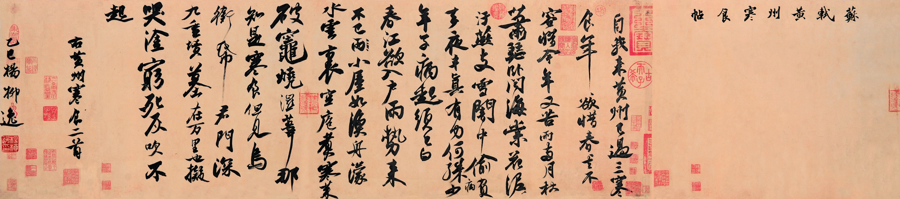 蘇軾黄州寒食帖
自我来黄州已過三寒
食年欲惜春春去不
容惜今年又苦雨兩月秋
蕭瑟卧聞海棠花泥
汙燕支雪闇中偷負
去夜半真有力何殊病少
年子病起頭已白
春江欲入户雨勢来
不已雨小屋如漁舟濛
水雲裏空庖煮寒菜
破竈燒濕葦那
知是寒食但見烏
銜帋君門深
九重墳墓在万里也擬
哭塗窮死灰吹不
起
右黄州寒食二首
乙巳柳逸